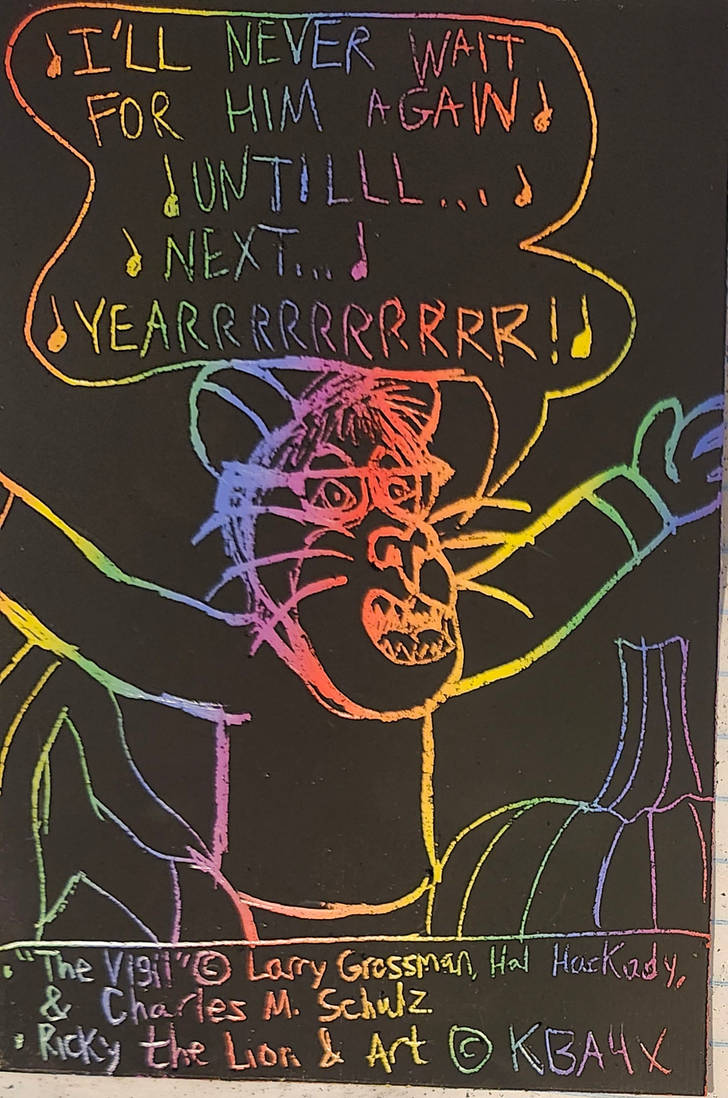 I'LL NEVER WAIT
FOR HIM AGAIN
UNTILLL...
NEXT...
YEARRRRRRRRRR!
• "The Vigil" © Larry Grossman, Hal Hackady,
& Charles M. Schulz.
• Ricky the Lion & Art © KBA4X